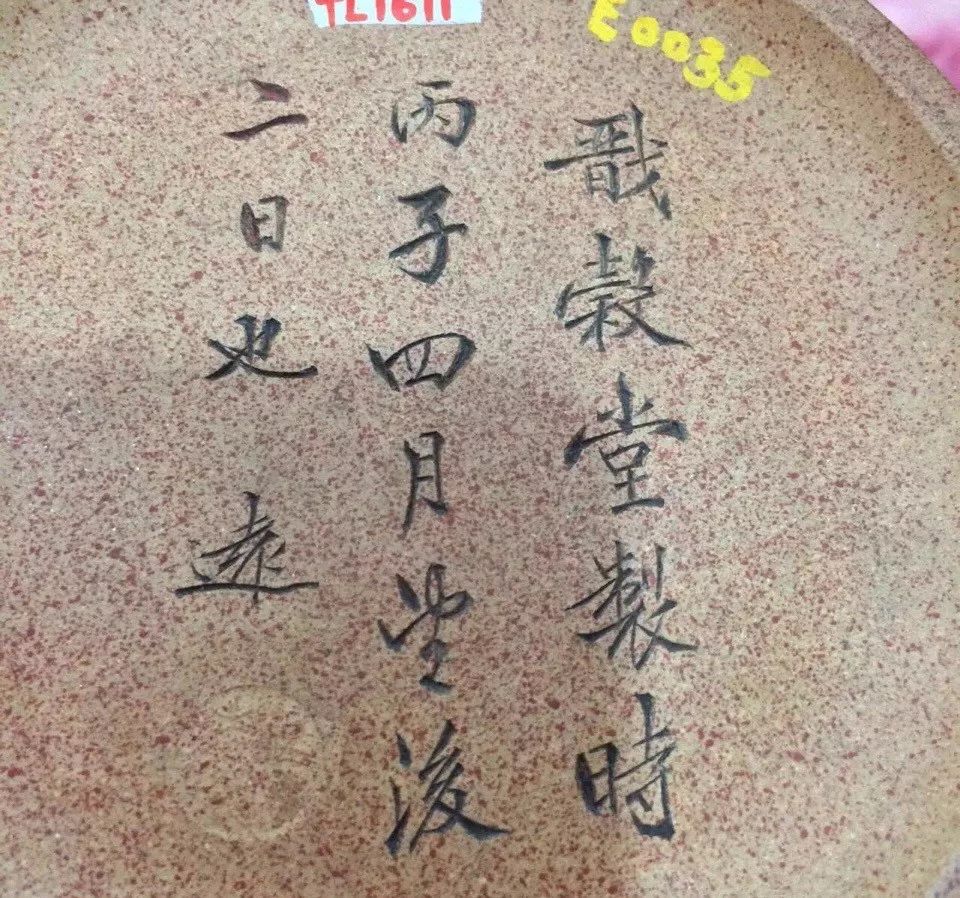 E0035
戩穀堂製時
丙子四月望後
二日也 遠